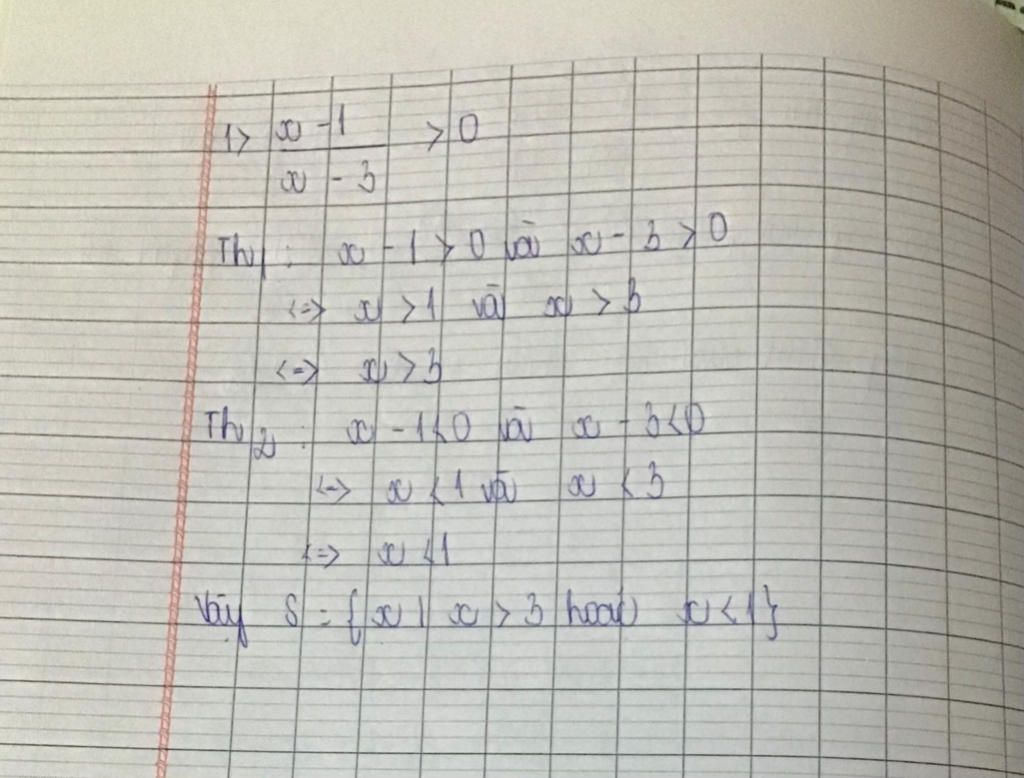 1> x - 1 / x - 3 > 0
Th1 : x - 1 > 0 và x - 3 > 0
<=> x > 1 và x > 3
<=> x > 3
Th2 : x - 1 < 0 và x - 3 < 0
<=> x < 1 và x < 3
<=> x < 1
Vậy S = { x | x > 3 hoặc x < 1 }